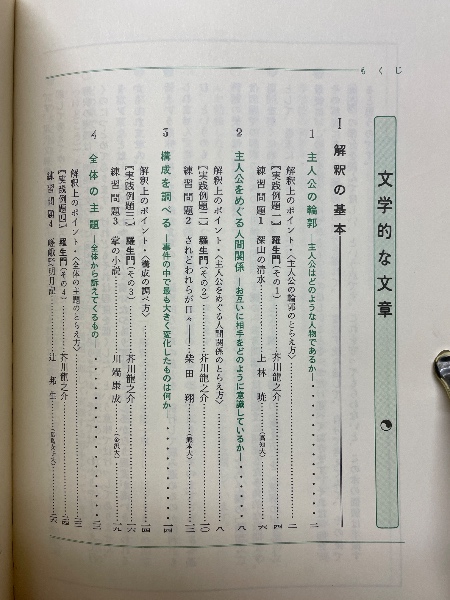 もくじ
文学的な文章
Ⅰ 解釈の基本
1 主人公の輪郭 ―主人公はどのような人物であるか―……………二
解釈上のポイント・〈主人公の輪郭のとらえ方〉……………二
〔実践例題一〕 羅生門(その1)……芥川龍之介……………四
練習問題1 深山の清水……上林 暁……〈高知大〉……六
2 主人公をめぐる人間関係 ―お互いに相手をどのように意識しているか―……八
解釈上のポイント・〈主人公をめぐる人間関係のとらえ方〉……八
〔実践例題二〕 羅生門(その2)……芥川龍之介……………一〇
練習問題2 されどわれらが日々―……柴田 翔……〈熊本大〉……三
3 構成を調べる ―事件の中で最も大きく変化したものは何か……………一四
解釈上のポイント・〈構成の調べ方〉……………一四
〔実践例題三〕 羅生門(その3)……芥川龍之介……………一六
練習問題3 掌の小説……川端康成……〈金沢大〉……一九
4 全体の主題 ―全体から訴えてくるもの……………
解釈上のポイント・〈全体の主題のとらえ方〉……………
〔実践例題四〕 羅生門(その4)……芥川龍之介……………二四
練習問題4 嵯峨野明月記……辻 邦生……二六